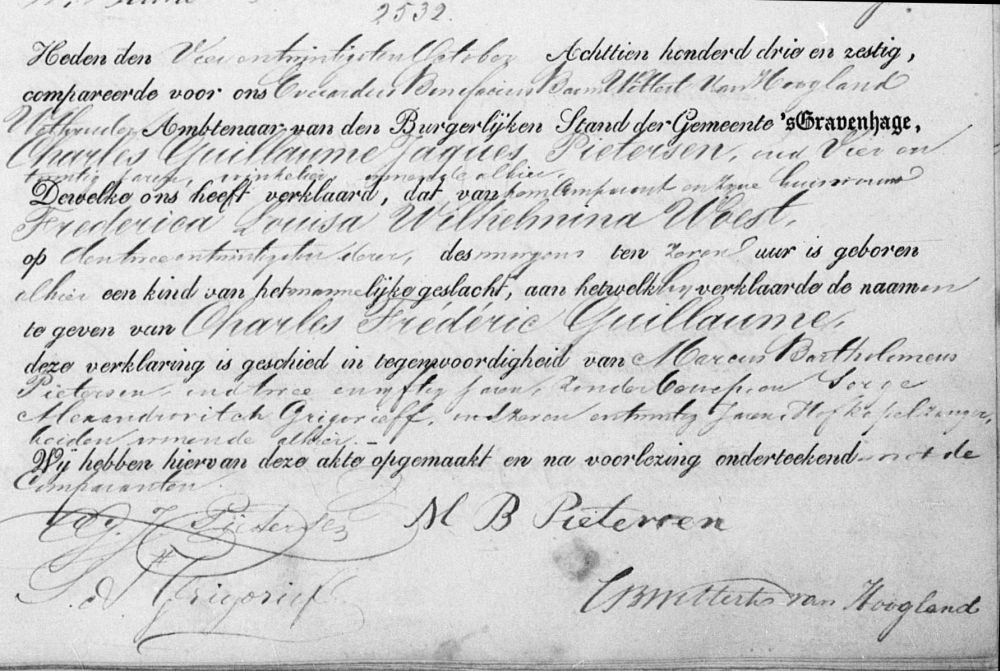 2532.
Heden den Vier en twintigsten October Achttien honderd drie en zestig,
compareerde voor ons Everardus Bonifacius Baron Wittert van Hoogland
Wethouder Ambtenaar van den Burgerlijken Stand der Gemeente 'sGravenhage,
Charles Guillaume Jaques Pietersen, oud Vier en
twintig jaren, winkelier, wonende alhier,
Dewelke ons heeft verklaard, dat van hem Comparant en zijne huisvrouw
Frederica Louisa Wilhelmina Woest,
op den twee en twintigsten dezer, des morgens ten zeven uur is geboren
alhier een kind van het mannelijke geslacht, aan hetwelk hij verklaarde de naamen
te geven van Charles Fréderic Guillaume,
deze verklaring is geschied in tegenwoordigheid van Marcus Bartholomeus
Pietersen, oud twee en vyftig jaren, zonder beroep, en Serge
Alexandrovitch Grigorieff, oud zeven en twintig jaren, Hofkapelzanger,
beiden wonende alhier.-
Wij hebben hiervan deze akte opgemaakt en na voorlezing onderteekend met de
Comparanten.
C. G. J. Pietersen M B Pietersen
S. d'Grigorief
EBWitterts van Hoogland